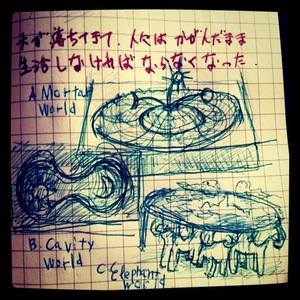 天が落ちてきて、人々はかがんだまま
生活しなければならなくなった.
A Mortar
World
B. Cavity
World
C. Elephant
World